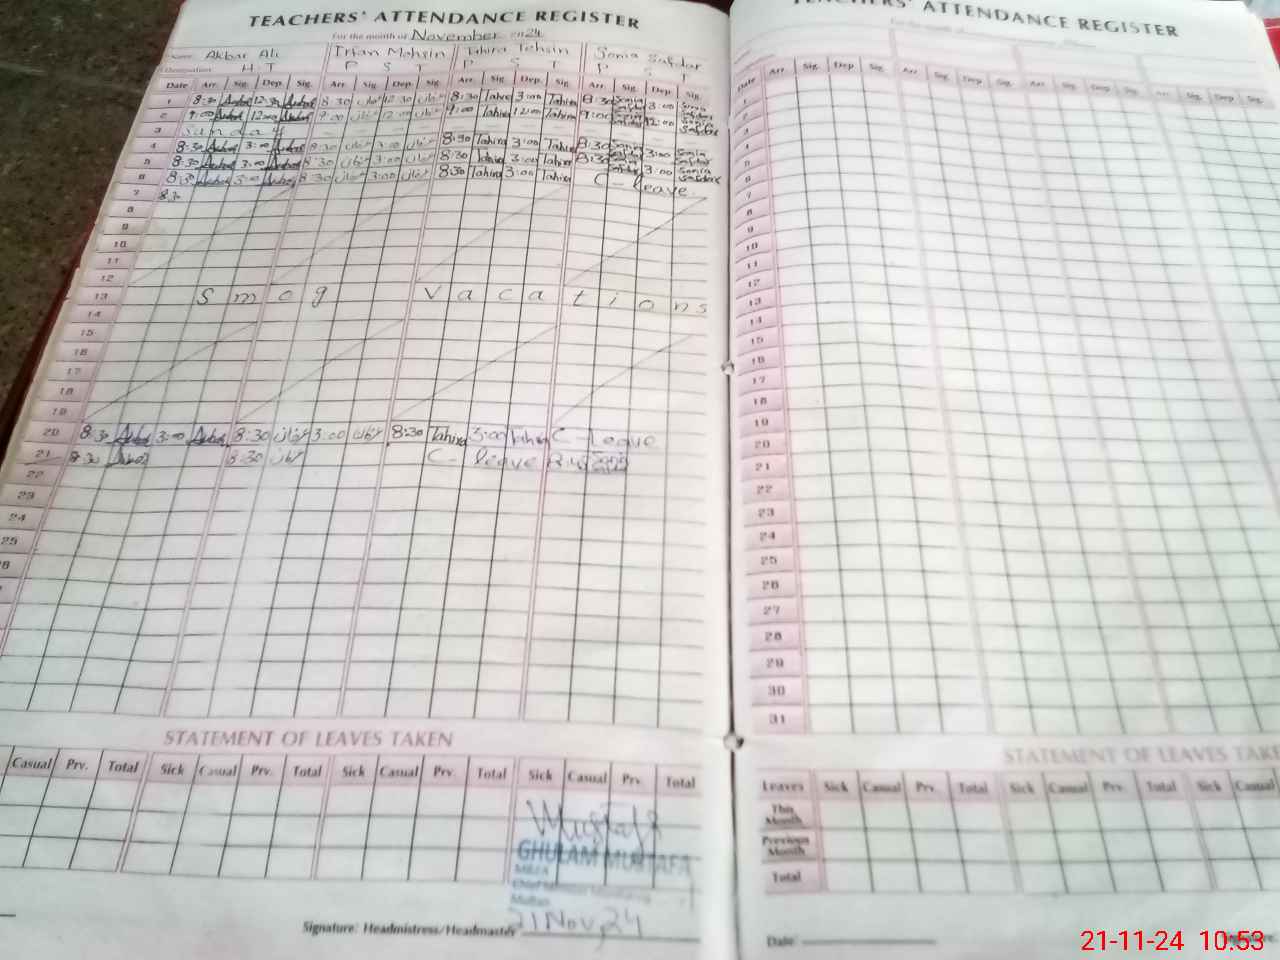 TEACHERS' ATTENDANCE REGISTER
For the month of November 2024
Name: Akbar Ali Irfan Mohsin Tahira Tehsin Sonia Safdar
Designation: H.T P S T P S T P S T
Date Arr. Sig. Dep. Sig. Arr. Sig. Dep. Sig. Arr. Sig. Dep. Sig. Arr. Sig. Dep. Sig.
1 8:30 12:30 8:30 عرفان 12:30 عرفان 8:30 Tahira 3:00 Tahira 8:30 Sonia Safdar 3:00 Sonia Safdar
2 9:00 12:00 9:00 عرفان 12:00 عرفان 9:00 Tahira 12:00 Tahira 9:00 Sonia Safdar 12:00 Sonia Safdar
3 Sunday
4 8:30 3:00 8:30 عرفان 3:00 عرفان 8:30 Tahira 3:00 Tahira 8:30 Sonia Safdar 3:00 Sonia Safdar
5 8:30 3:00 8:30 عرفان 3:00 عرفان 8:30 Tahira 3:00 Tahira 8:30 Sonia Safdar 3:00 Sonia Safdar
6 8:30 3:00 8:30 عرفان 3:00 عرفان 8:30 Tahira 3:00 Tahira C-leave
7 8:30
8
9
10
11
12
13 Smog Vacations
14
15
16
17
18
19
20 8:30 3:00 8:30 عرفان 3:00 عرفان 8:30 Tahira 3:00 Tahira C-Leave
21 8:30 8:30 عرفان C-leave Sonia Safdar
22
23
24
25
STATEMENT OF LEAVES TAKEN
Casual Prv. Total Sick Casual Prv. Total Sick Casual Prv. Total Sick Casual Prv. Total
Mustafa
GHULAM MUSTAFA
MEA
Multan
21 Nov, 24
Signature: Headmistress/Headmaster
TEACHERS' ATTENDANCE REGISTER
Date Arr. Sig. Dep. Sig. Arr. Sig. Dep. Sig. Arr. Sig. Dep. Sig. Arr. Sig. Dep. Sig.
1
2
3
4
5
6
7
8
9
10
11
12
13
14
15
16
17
18
19
20
21
22
23
24
25
26
27
28
29
30
31
STATEMENT OF LEAVES TAKE
Leaves Sick Casual Prv. Total Sick Casual Prv. Total Sick Casual
This Month
Previous Month
Total
Date: Signature:
21-11-24 10:53